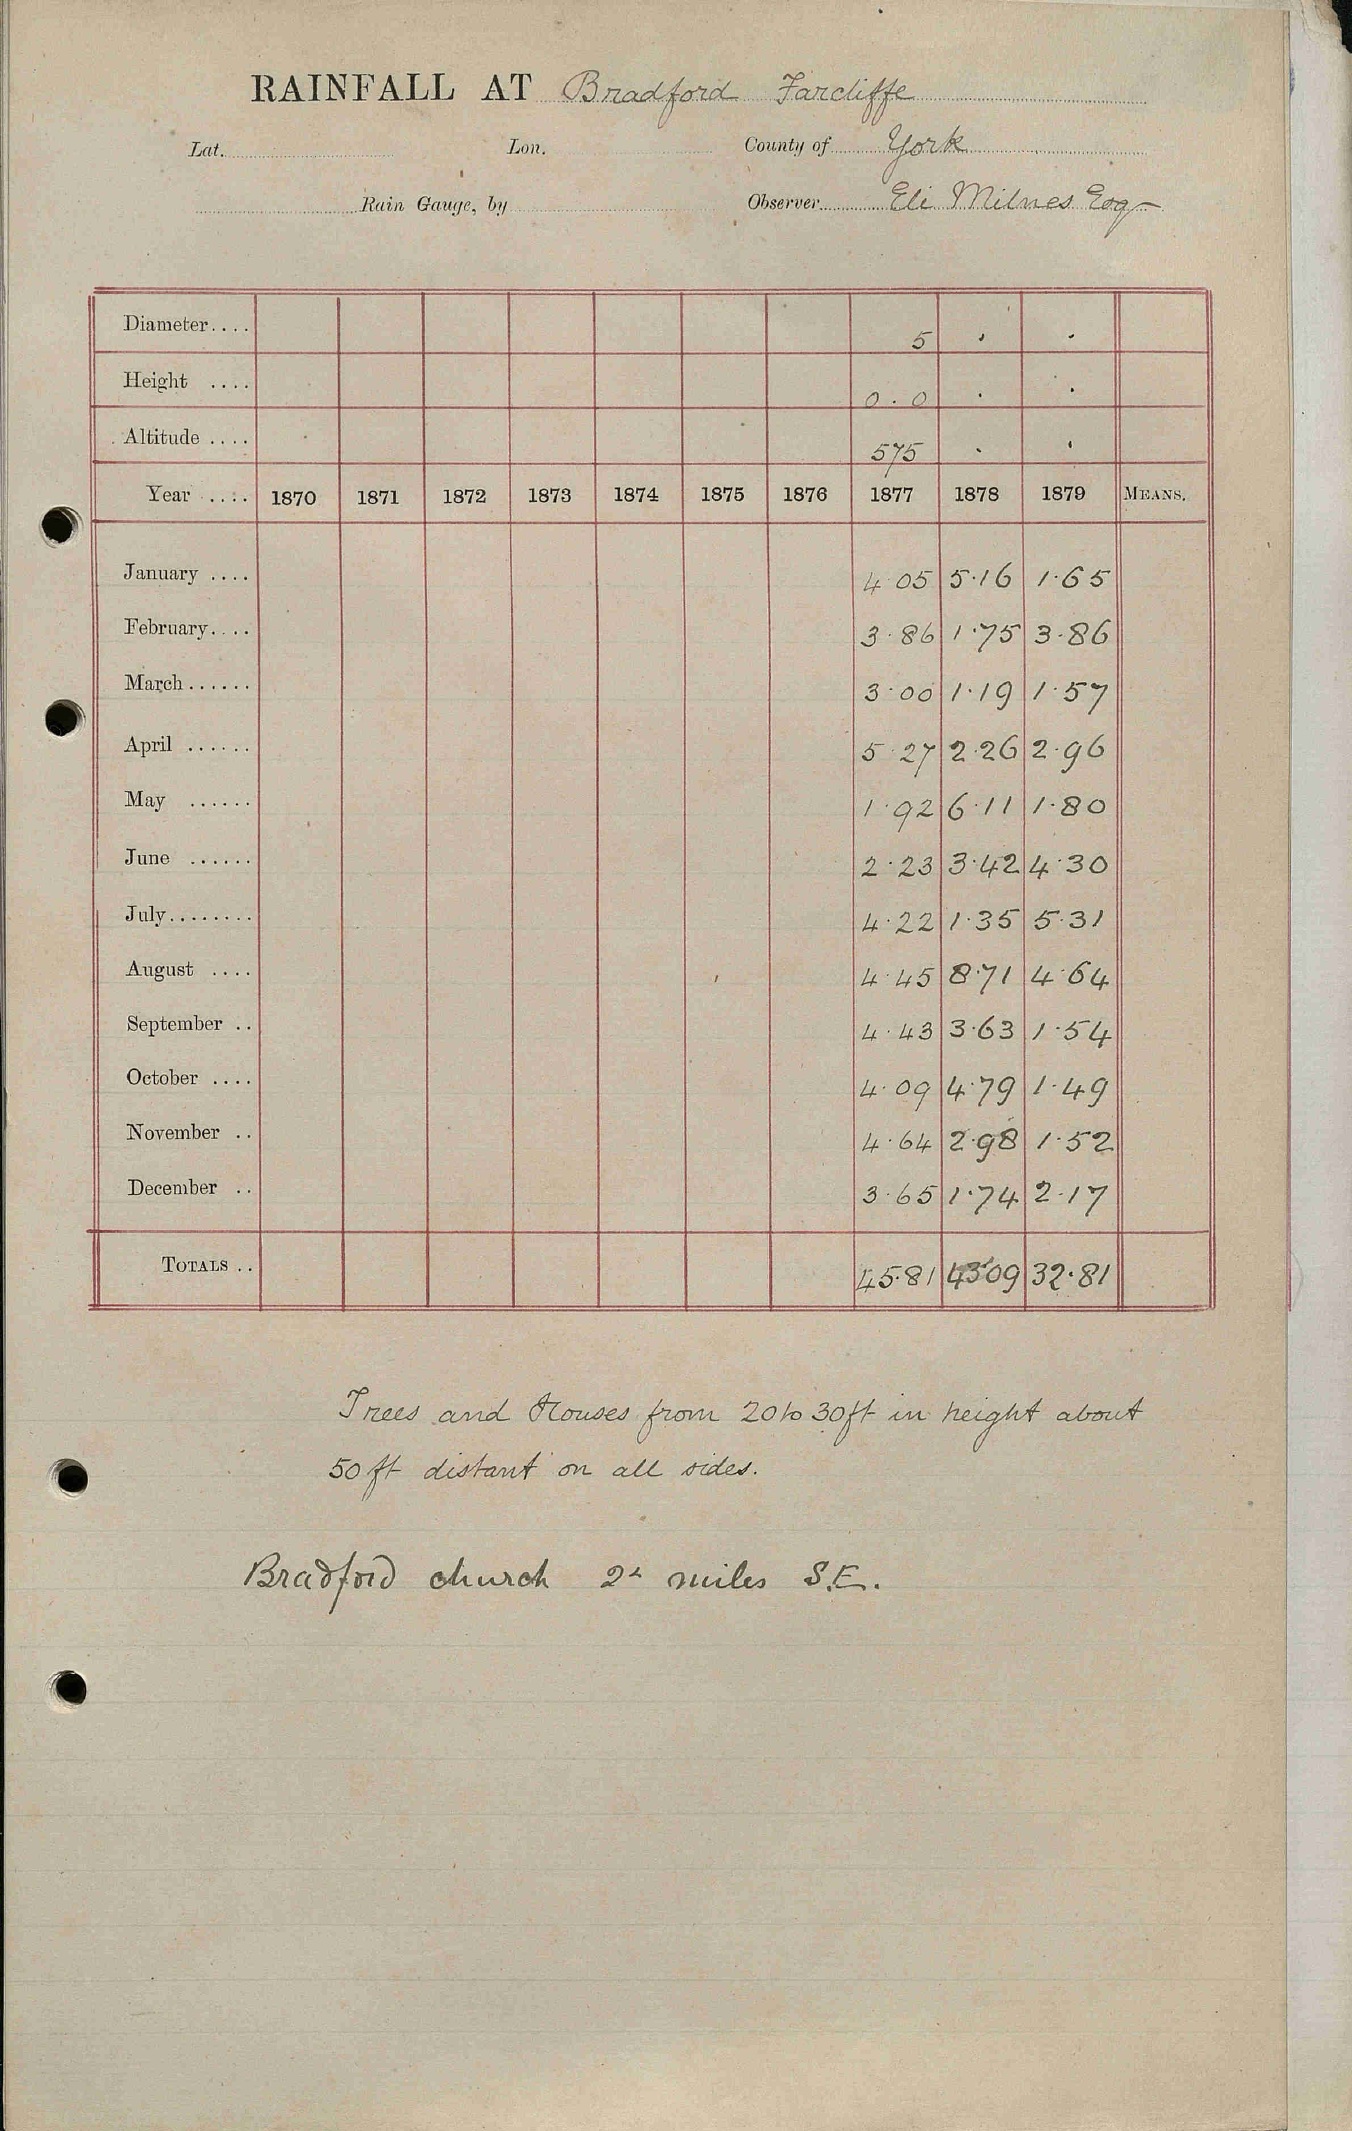 RAINFALL AT Bradford Farcliffe
Lat. Lon. County of York
Rain Gauge, by Observer Eli Milnes Esq
Diameter.... 5 . .
Height .... 0.0 . .
Altitude .... 575 . .
Year .... 1870 1871 1872 1873 1874 1875 1876 1877 1878 1879 MEANS.
January .... 4.05 5.16 1.65
February.... 3.86 1.75 3.86
March...... 3.00 1.19 1.57
April ...... 5.27 2.26 2.96
May ...... 1.92 6.11 1.80
June ...... 2.23 3.42 4.30
July........ 4.22 1.35 5.31
August .... 4.45 8.71 4.64
September .. 4.43 3.63 1.54
October .... 4.09 4.79 1.49
November .. 4.64 2.98 1.52
December .. 3.65 1.74 2.17
TOTALS .. 45.81 43.09 32.81
Trees and Houses from 20 to 30 ft in height about
50 ft distant on all sides.
Bradford church miles S.E.